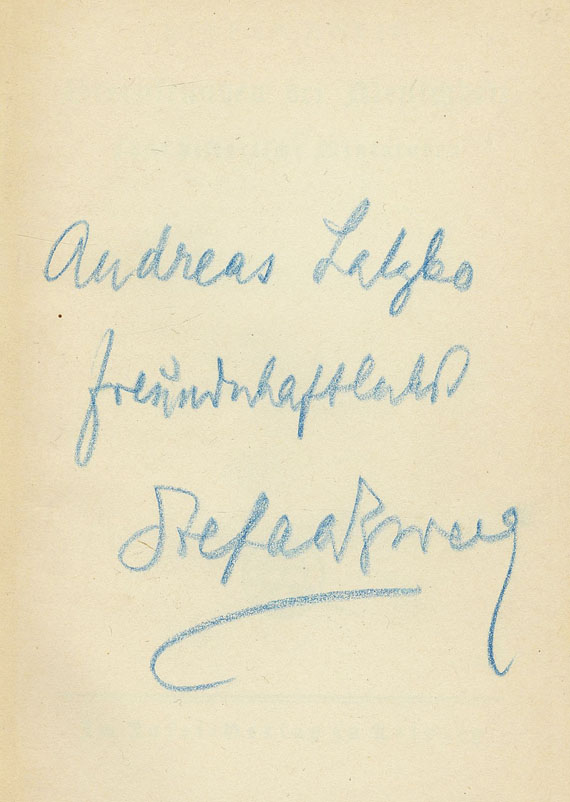 Andreas Latzko
freundschaftlichst
Stefan Zweig